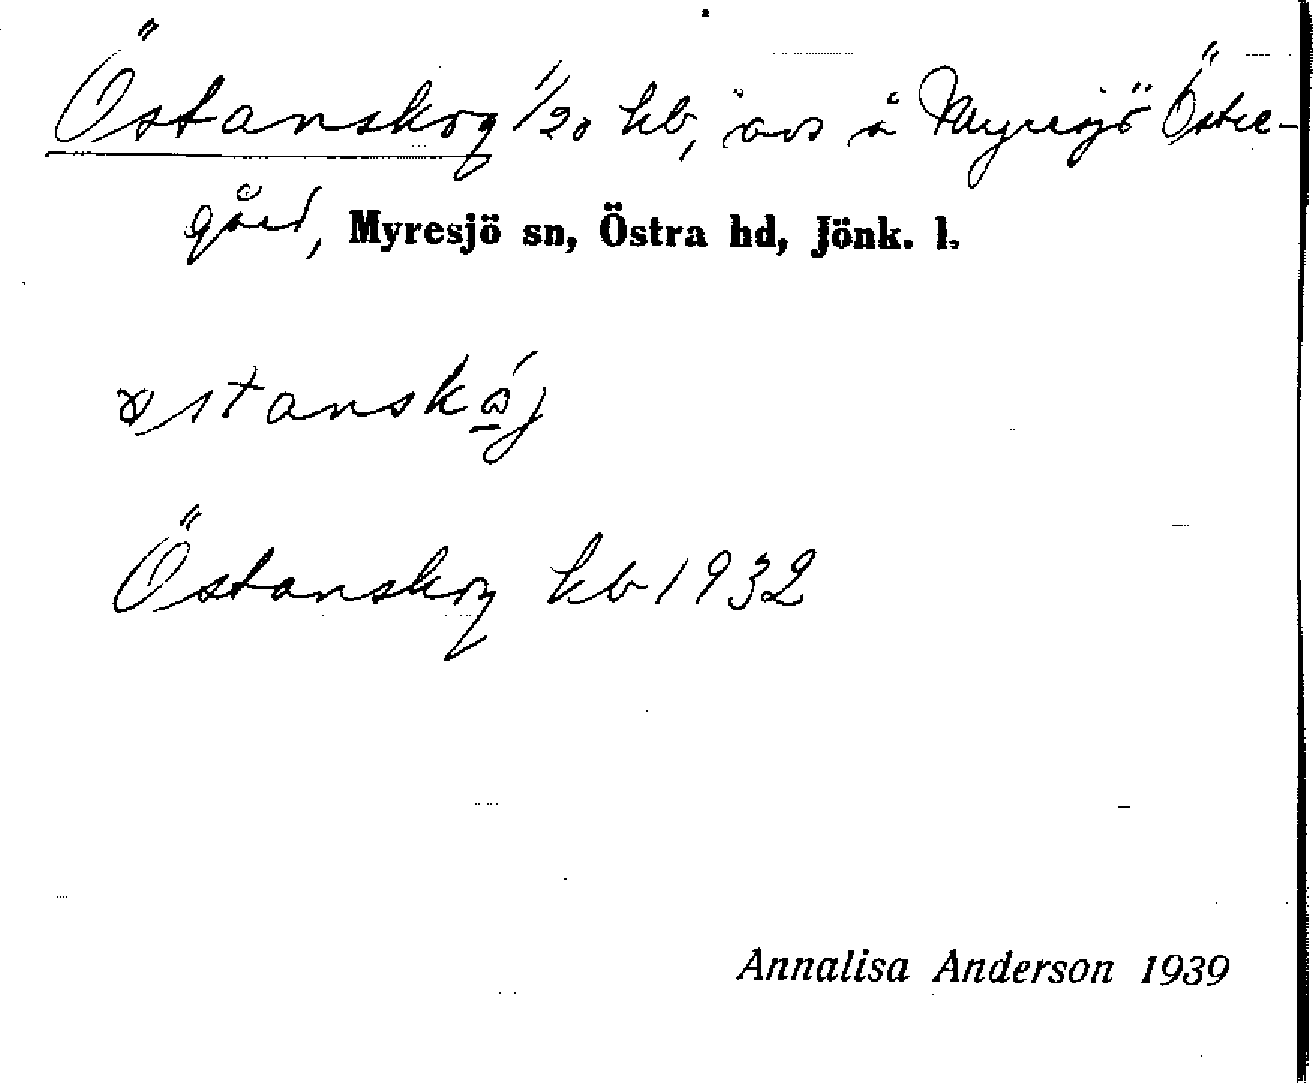 Östanskog 1/20 kb, avs å Myresjö Östre-
gård, Myresjö sn, Östra hd, Jönk. l.
Östanskog kb 1932
Annalisa Anderson 1939